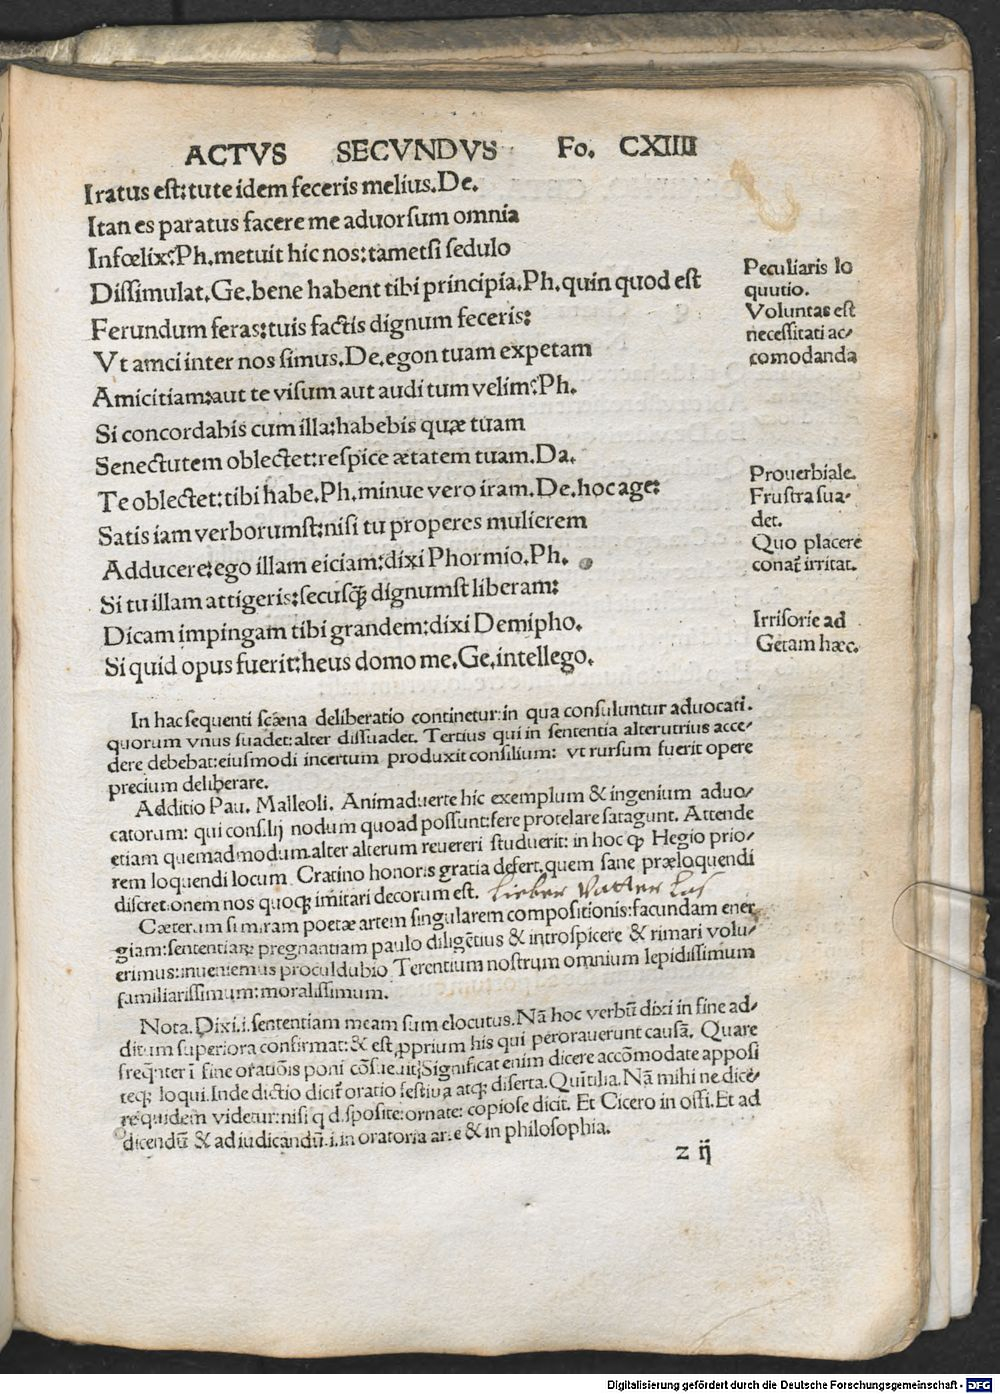 ACTVS SECVNDVS Fo. CXIIII
Iratus est: tute idem feceris melius. De.
Itan es paratus facere me aduorsum omnia
Infœlix? Ph. metuit hic nos: tametsi sedulo
Dissimulat. Ge. bene habent tibi principia. Ph. quin quod est
Ferundum feras: tuis factis dignum feceris:
Vt amci inter nos simus. De. egon tuam expetam
Amicitiam: aut te visum aut auditum velim? Ph.
Si concordabis cum illa: habebis quæ tuam
Senectutem oblectet: respice ætatem tuam. Da.
Te oblectet: tibi habe. Ph. minue vero iram. De. hoc age:
Satis iam verborumst: nisi tu properes mulierem
Adducere: ego illam eiciam: dixi Phormio. Ph.
Si tu illam attigeris: secusqꝫ dignumst liberam:
Dicam impingam tibi grandem: dixi Demipho.
Si quid opus fuerit: heus domo me. Ge. intellego.
Peculiaris lo
quutio.
Voluntas est
necessitati ac-
comodanda
Prouerbiale.
Frustra sua-
det.
Quo placere
conat̄ irritat.
Irrisorie ad
Getam hæc.
In hac sequenti scæna deliberatio continetur: in qua consuluntur aduocati.
quorum vnus suadet: alter dissuadet. Tertius qui in sententia alterutrius acce-
dere debebat: eiusmodi incertum produxit consilium: vt rursum fuerit opere
precium deliberare.
Additio Pau. Malleoli. Animaduerte hic exemplum & ingenium aduo-
catorum: qui consilij nodum quoad possunt: fere protelare satagunt. Attende
etiam quemadmodum alter alterum reuereri studuerit: in hoc ꝙ Hegio prio-
rem loquendi locum Cratino honoris gratia defert. quem sane præloquendi
discretionem nos quoqꝫ imitari decorum est. lieber Vatter las
Cæterum si miram poetæ artem singularem compositionis: facundam ener
giam: sententiarꝫ pregnantiam paulo diligētius & introspicere & rimari volu-
erimus: inueniemus proculdubio Terentium nostrum omnium lepidissimum
familiarissimum: moralissimum.
Nota. Dixi .i. sententiam meam sum elocutus. Nā hoc verbū dixi in fine ad-
ditum superiora confirmat: & est ꝓprium his qui perorauerunt causā. Quare
freqn̄ter ī fine oratiōis poni cōsueuit: Significat enim dicere accōmodate apposi
teqꝫ loqui. Inde dictio dicit̄ oratio festiua atqꝫ diserta. Quītilia. Nā mihi ne dice-
re quidem videtur: nisi q disposite: ornate: copiose dicit. Et Cicero in offi. Et ad
dicendū & ad iudicandū .i. in oratoria arte & in philosophia.
z ij
Digitalisierung gefördert durch die Deutsche Forschungsgemeinschaft - DFG